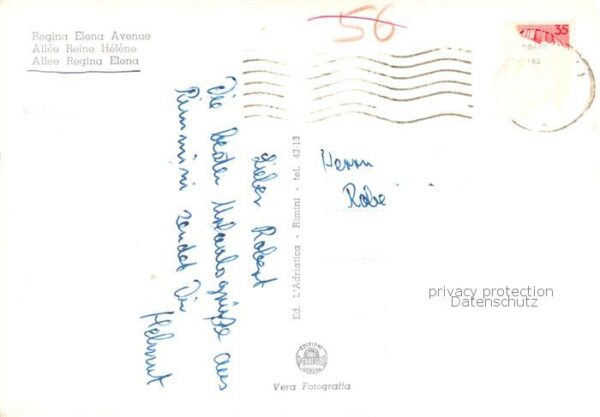 Regina Elena Avenue
Allée Reine Hélène
Allee Regina Elena
56
35
Lieber Robert
Die besten Urlaubsgrüße aus
Rimmini sendet Dir
Helmut
Ed. L'Adriatica - Rimini - tel. 43-13
Herrn
Robe
privacy protection
Datenschutz
EDIZIONI
Vera Fotografia